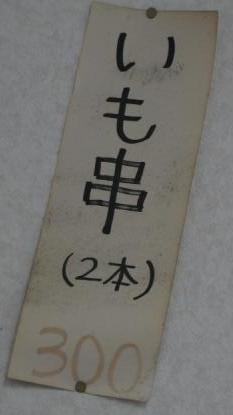 いも串
(2本)
300